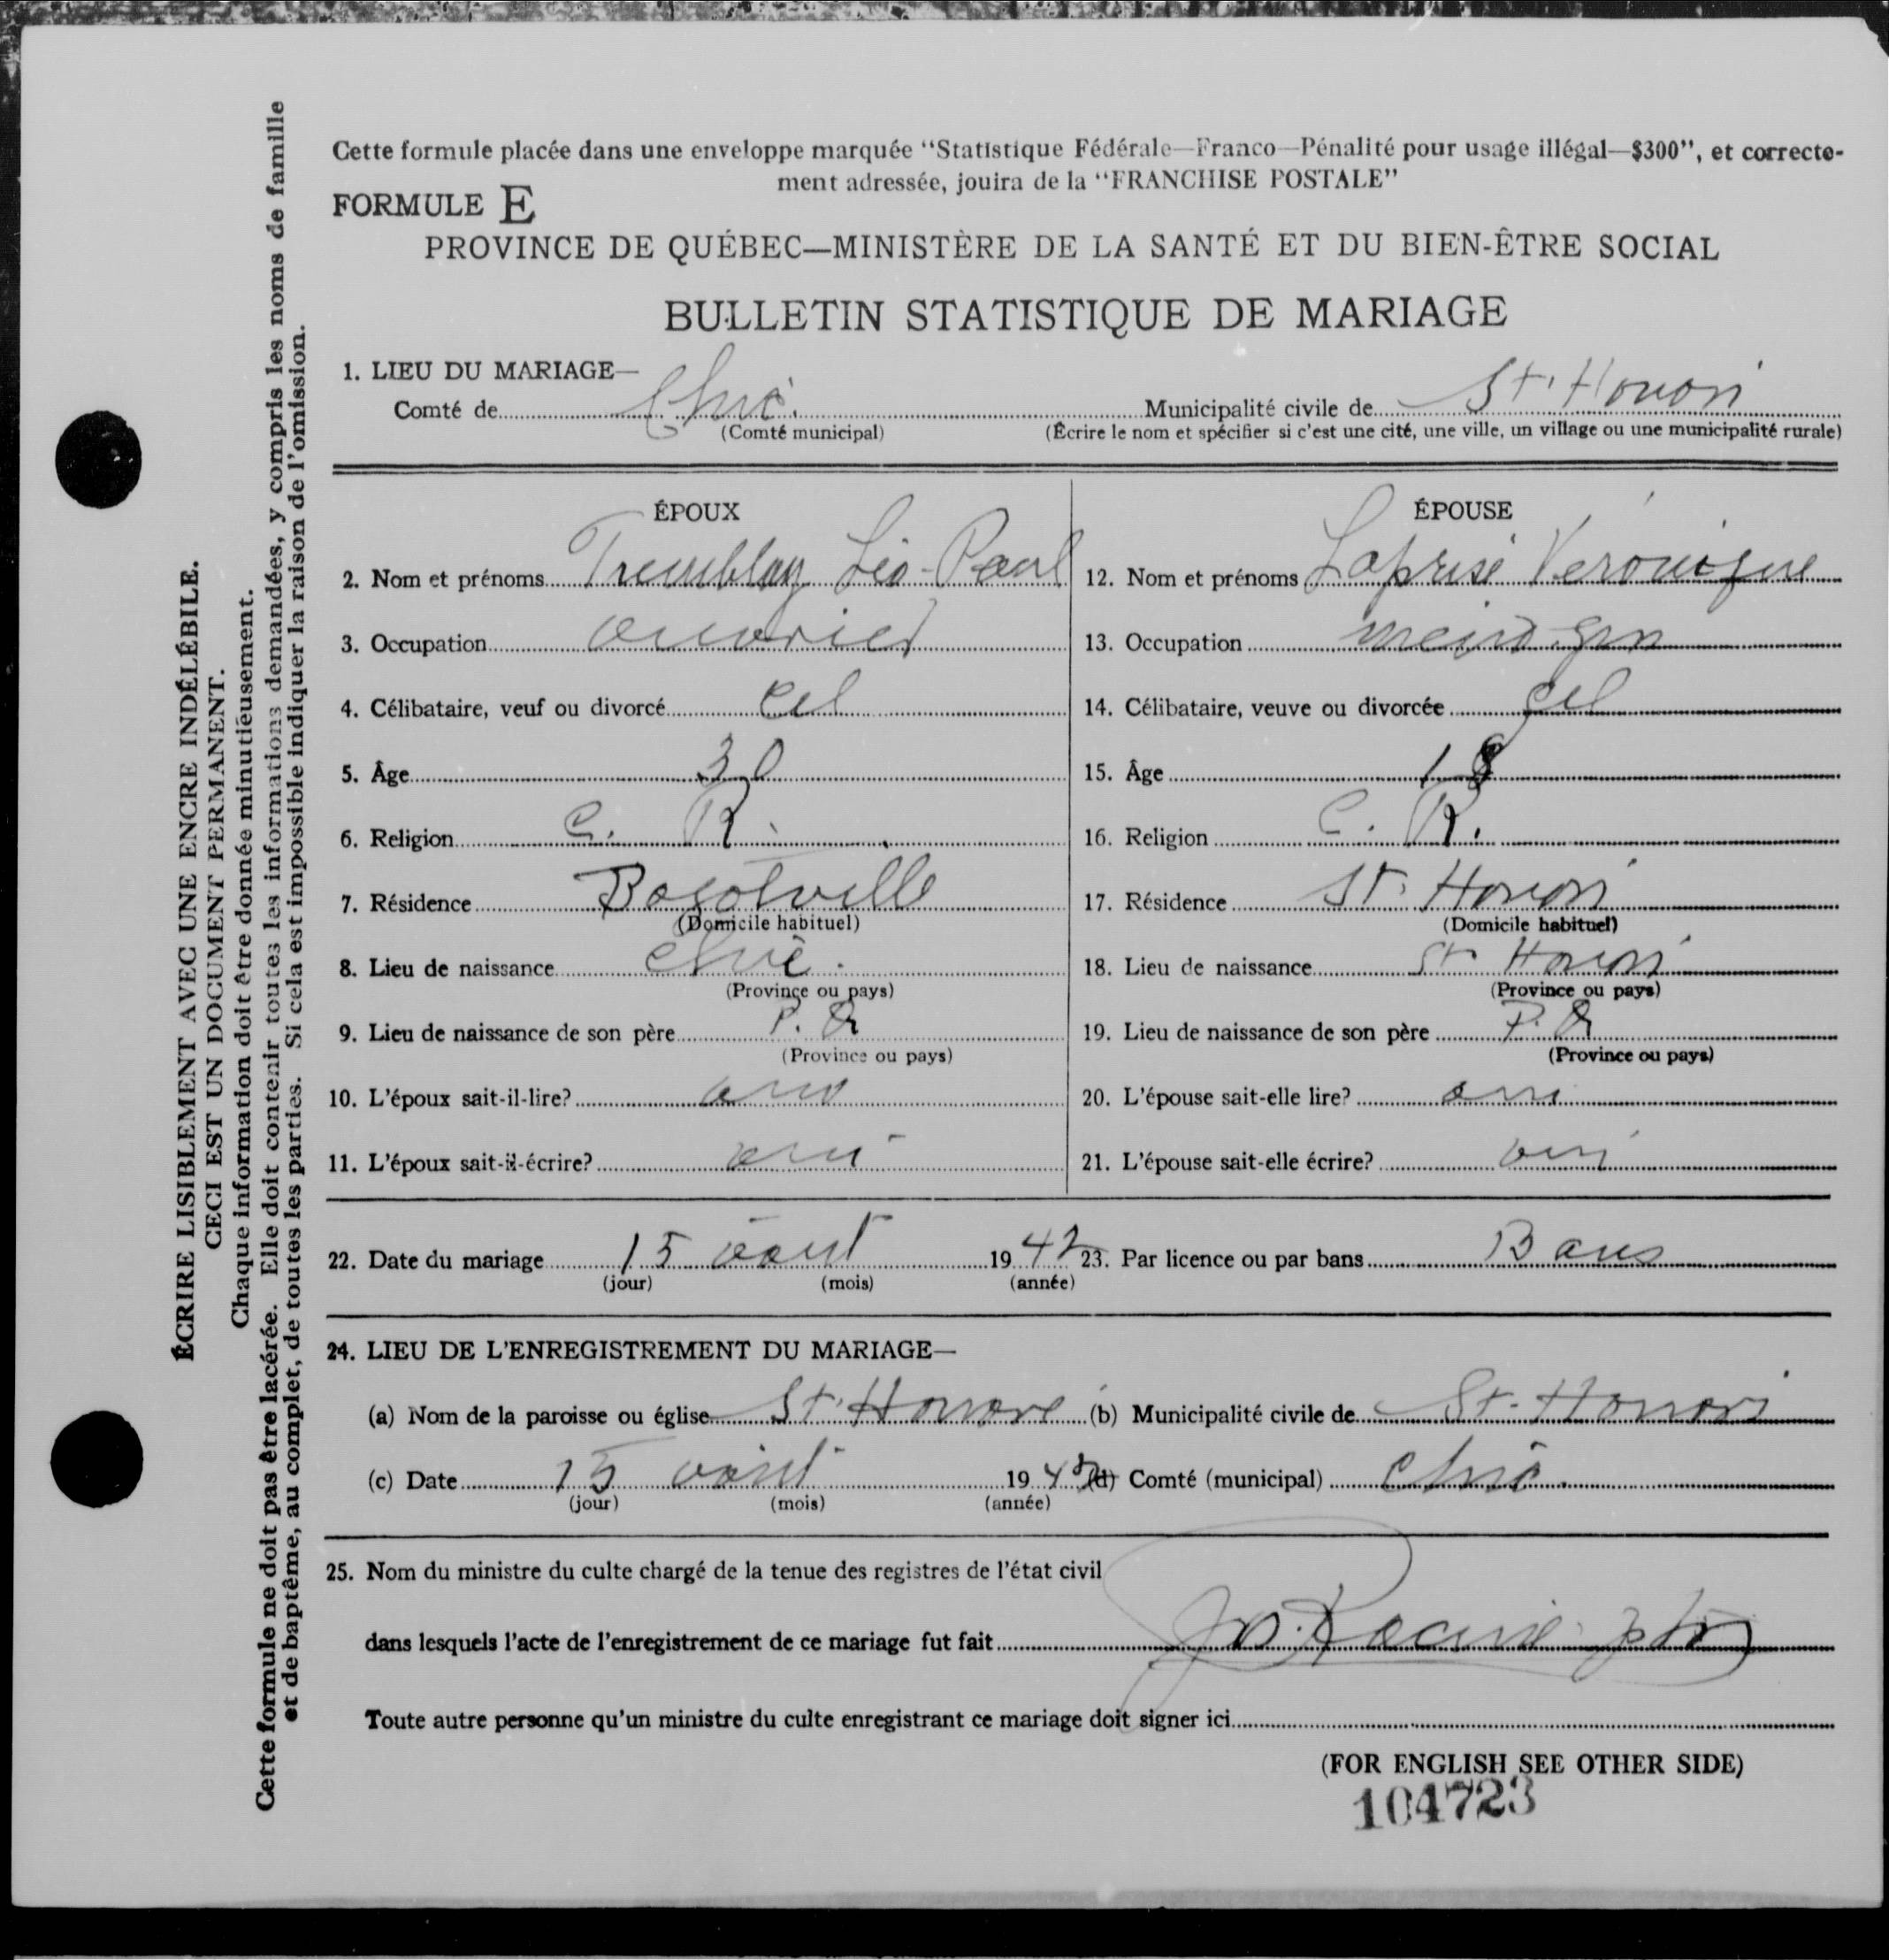 Cette formule placée dans une enveloppe marquée “Statistique Fédérale—Franco—Pénalité pour usage illégal—$300”, et correcte-
ment adressée, jouira de la “FRANCHISE POSTALE”
FORMULE E
PROVINCE DE QUÉBEC—MINISTÈRE DE LA SANTÉ ET DU BIEN-ÊTRE SOCIAL
BULLETIN STATISTIQUE DE MARIAGE
1. LIEU DU MARIAGE—
Comté de Chic. Municipalité civile de St. Honoré
(Comté municipal) (Écrire le nom et spécifier si c'est une cité, une ville, un village ou une municipalité rurale)
ÉPOUX
2. Nom et prénoms Tremblay Léo-Paul
3. Occupation ouvrier
4. Célibataire, veuf ou divorcé cel
5. Âge 30
6. Religion C. R.
7. Résidence Bagotville
(Domicile habituel)
8. Lieu de naissance Chic.
(Province ou pays)
9. Lieu de naissance de son père P. Q
(Province ou pays)
10. L'époux sait-il-lire? oui
11. L'époux sait-il-écrire? oui
ÉPOUSE
12. Nom et prénoms Laprise Véronique
13. Occupation
14. Célibataire, veuve ou divorcée cel
15. Âge 18
16. Religion C. R.
17. Résidence St. Honoré
(Domicile habituel)
18. Lieu de naissance St Honoré
(Province ou pays)
19. Lieu de naissance de son père P. Q
(Province ou pays)
20. L'épouse sait-elle lire? oui
21. L'épouse sait-elle écrire? oui
22. Date du mariage 15 août 1942 23. Par licence ou par bans Bans
(jour) (mois) (année)
24. LIEU DE L'ENREGISTREMENT DU MARIAGE—
(a) Nom de la paroisse ou église St. Honoré (b) Municipalité civile de St-Honoré
(c) Date 15 août 1942 (d) Comté (municipal) Chic.
(jour) (mois) (année)
25. Nom du ministre du culte chargé de la tenue des registres de l'état civil
dans lesquels l'acte de l'enregistrement de ce mariage fut fait Racine ptre
Toute autre personne qu'un ministre du culte enregistrant ce mariage doit signer ici
(FOR ENGLISH SEE OTHER SIDE)
104723
ÉCRIRE LISIBLEMENT AVEC UNE ENCRE INDÉLÉBILE.
CECI EST UN DOCUMENT PERMANENT.
Chaque information doit être donnée minutieusement.
Cette formule ne doit pas être lacérée. Elle doit contenir toutes les informations demandées, y compris les noms de famille
et de baptême, au complet, de toutes les parties. Si cela est impossible indiquer la raison de l'omission.